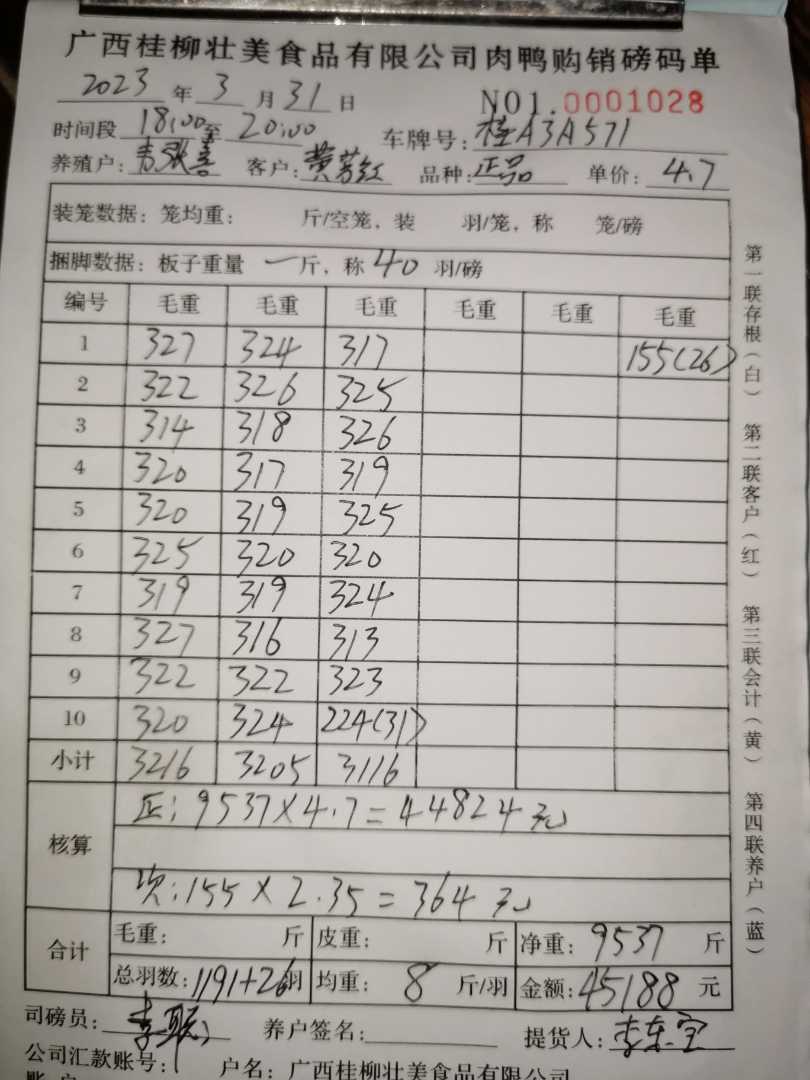 广西桂柳壮美食品有限公司肉鸭购销磅码单
2023 年 3 月 31 日 NO1.0001028
时间段 18:00至 20:00 车牌号: 桂A3A571
养殖户: 客户: 黄芳红 品种: 正品 单价: 4.7
装笼数据: 笼均重: 斤/空笼, 装 羽/笼, 称 笼/磅
捆脚数据: 板子重量 一斤, 称 40 羽/磅
编号 毛重 毛重 毛重 毛重 毛重 毛重
1 327 324 317 155(26)
2 322 326 325
3 314 318 326
4 320 317 319
5 320 319 325
6 325 320 320
7 319 319 324
8 327 316 313
9 322 322 323
10 320 324 224(31)
小计 3216 3205 3116
核算
正: 9537×4.7=44824元
次: 155×2.35=364元
合计
毛重: 斤 皮重: 斤 净重: 9537 斤
总羽数: 1191+26羽 均重: 8 斤/羽 金额: 45188 元
司磅员: 养户签名: 提货人: 李东宝
公司汇款账号: 户名: 广西桂柳壮美食品有限公司
第一联存根(白) 第二联客户(红) 第三联会计(黄) 第四联养户(蓝)